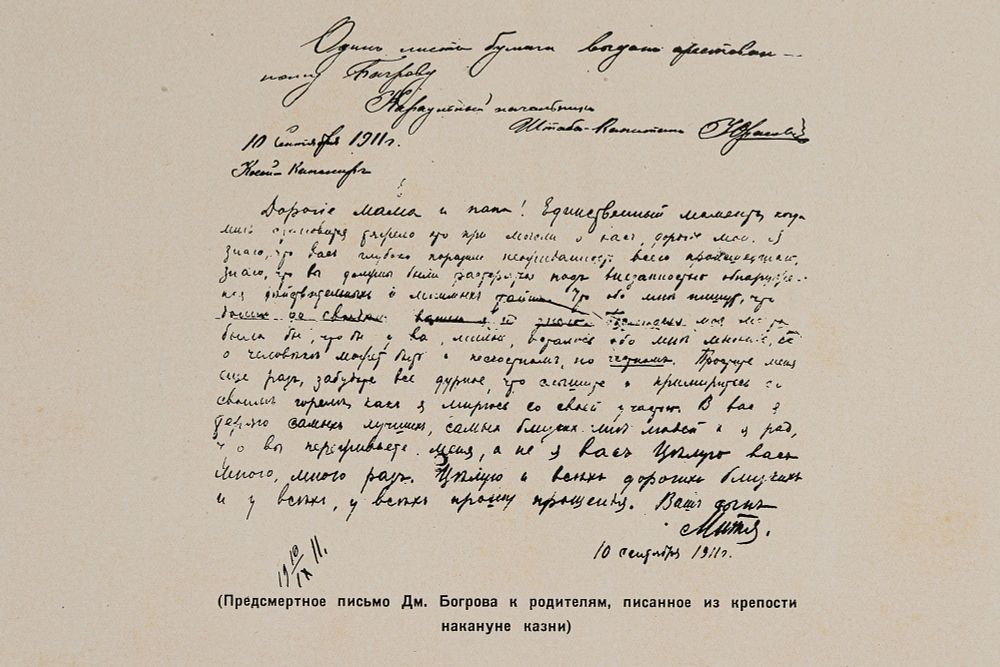 Одинъ листъ бумаги выданъ арестован-
ному Богрову
Караульный начальникъ
Штабсъ-Капитанъ
10 Сентября 1911 г.
Косой-Капониръ
Дорогіе мама и папа! Единственный моментъ, когда
мнѣ становится тяжело это при мысли о васъ, дорогіе мои. Я
знаю, что васъ глубоко поразила неожиданность всего происшедшаго,
знаю, что вы должны были растеряться подъ внезапностью обнаруже-
нія дѣйствительныхъ и мнимыхъ тайнъ. Что обо мнѣ пишутъ, что
моя мечта
была бы, чтобы у васъ, милые, осталось обо мнѣ мнѣніе, какъ
о человѣкѣ можетъ быть и несчастномъ, но честномъ. Простите меня
еще разъ, забудьте все дурное, что слышите и примиритесь со
своимъ горемъ, какъ я мирюсь со своей участью. Въ васъ я
теряю самыхъ лучшихъ, самыхъ близкихъ мнѣ людей и я радъ,
что вы переживаете меня, а не я васъ. Цѣлую васъ
много, много разъ. Цѣлую и всѣхъ дорогихъ близкихъ
и у всѣхъ, у всѣхъ прошу прощенія. Вашъ сынъ
Митя.
10 сентября 1911 г.
19 10/IX 11.
(Предсмертное письмо Дм. Богрова к родителям, писанное из крепости
накануне казни)